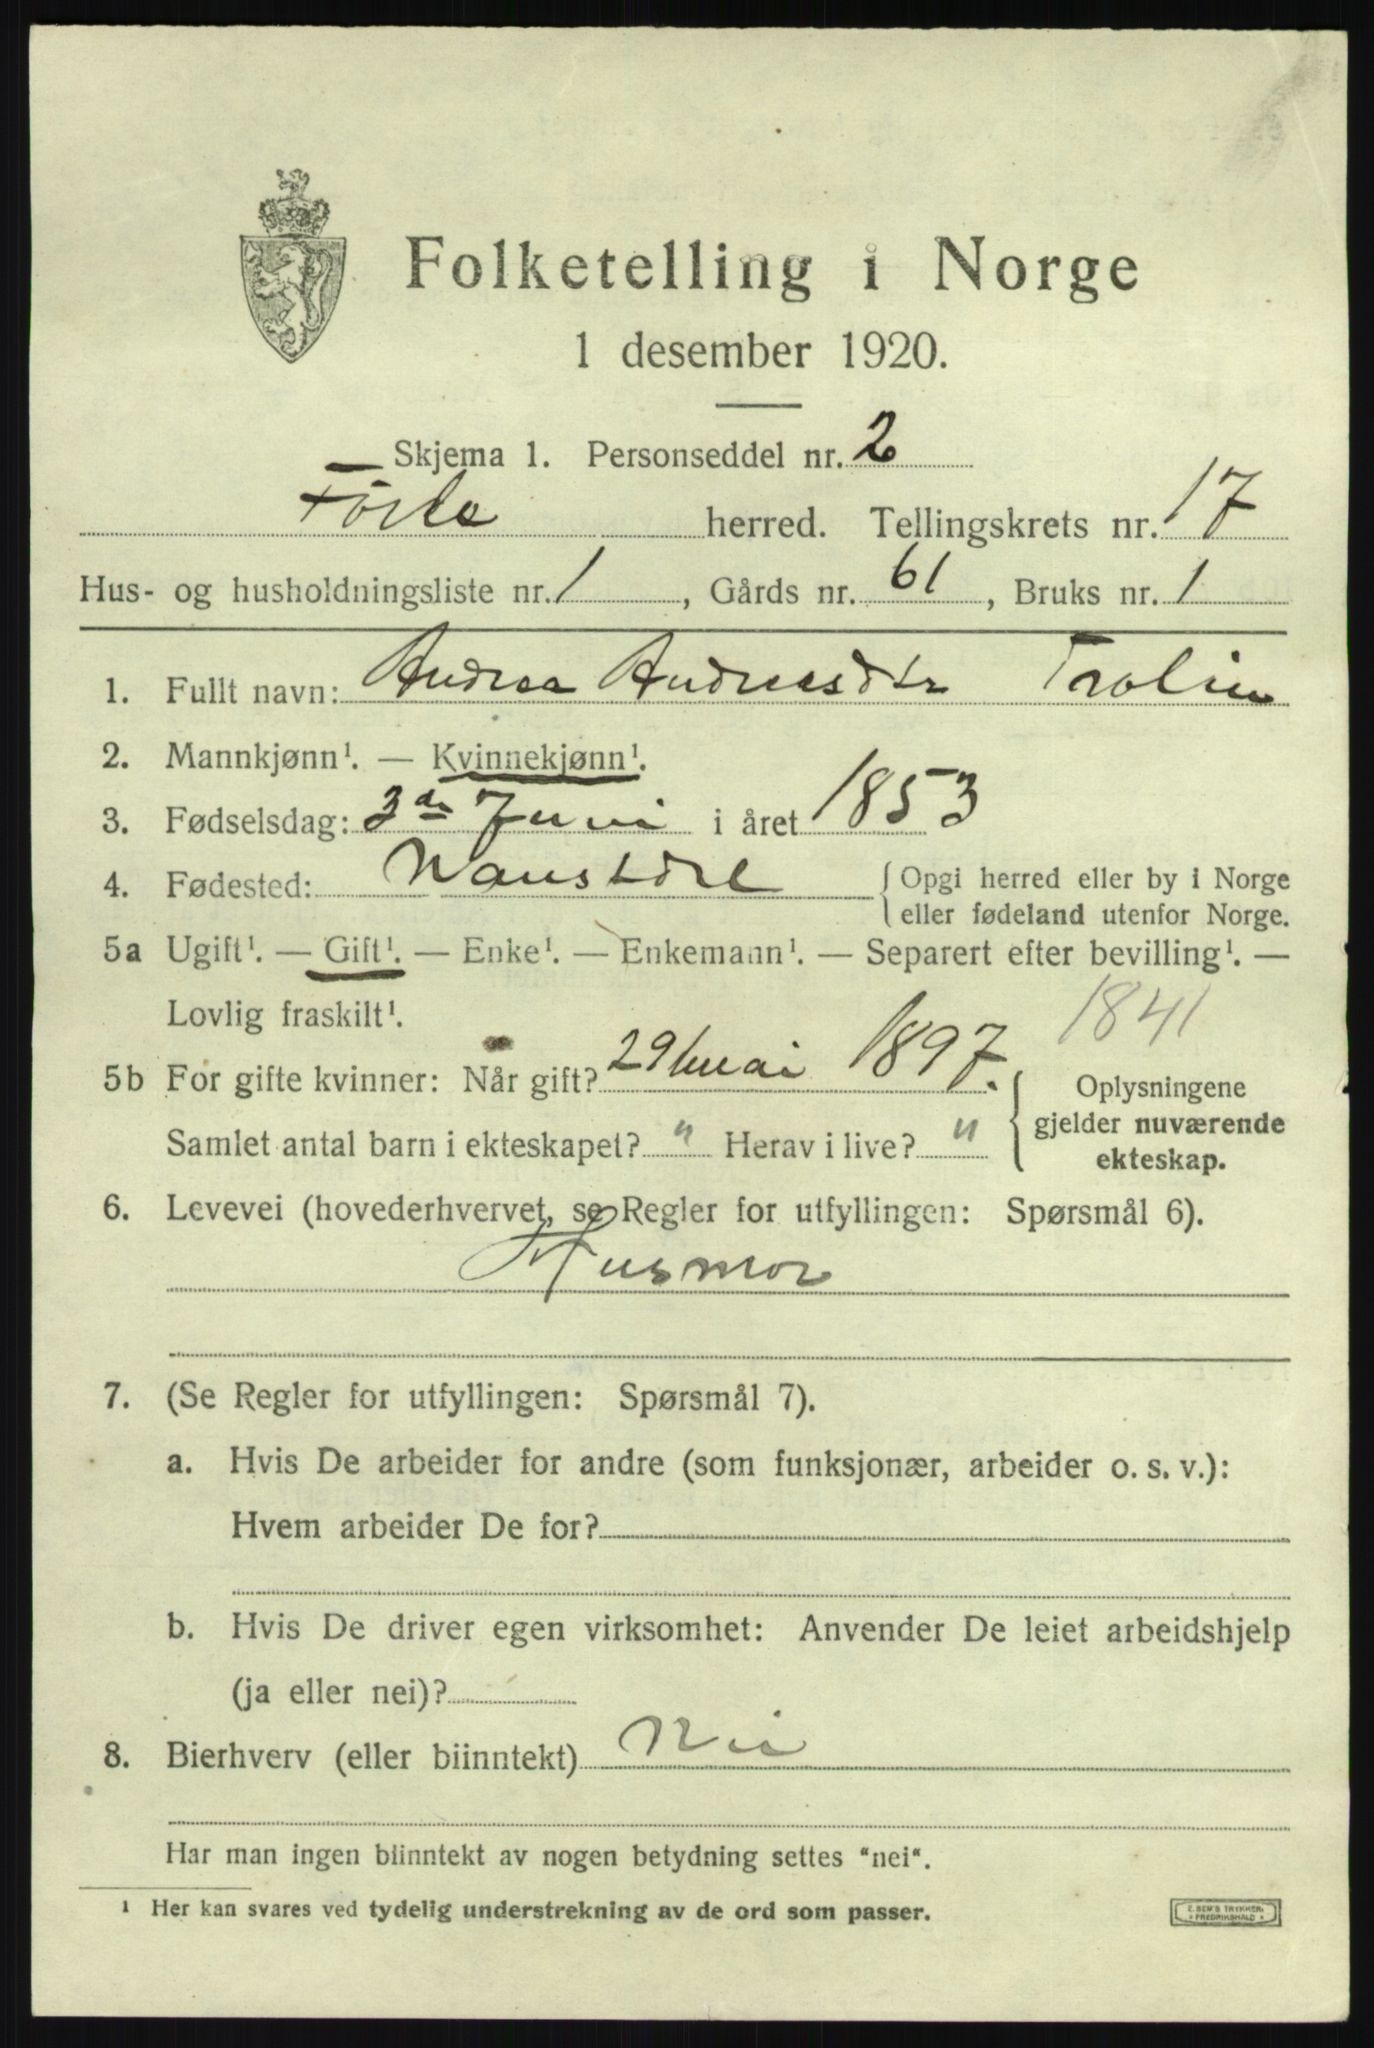 Folketelling i Norge
1 desember 1920.
Skjema 1. Personseddel nr. 2
herred. Tellingskrets nr. 17
Hus- og husholdningsliste nr. 1, Gårds nr. 61, Bruks nr. 1
1. Fullt navn: Andrea Andreasdtr
2. Mannkjønn¹. — Kvinnekjønn¹.
3. Fødselsdag: 3de Juni i året 1853
4. Fødested: { Opgi herred eller by i Norge
eller fødeland utenfor Norge.
5a Ugift¹. — Gift¹. — Enke¹. — Enkemann¹. — Separert efter bevilling¹. —
Lovlig fraskilt¹. 1841
5b For gifte kvinner: Når gift? 29 mai 1897. { Oplysningene
gjelder nuværende
Samlet antal barn i ekteskapet? " Herav i live? "
ekteskap.
6. Levevei (hovederhvervet, se Regler for utfyllingen: Spørsmål 6).
Husmor
7. (Se Regler for utfyllingen: Spørsmål 7).
a. Hvis De arbeider for andre (som funksjonær, arbeider o. s. v.):
Hvem arbeider De for?
b. Hvis De driver egen virksomhet: Anvender De leiet arbeidshjelp
(ja eller nei)?
8. Bierhverv (eller biinntekt) Nei
Har man ingen biinntekt av nogen betydning settes "nei".
¹ Her kan svares ved tydelig understrekning av de ord som passer.